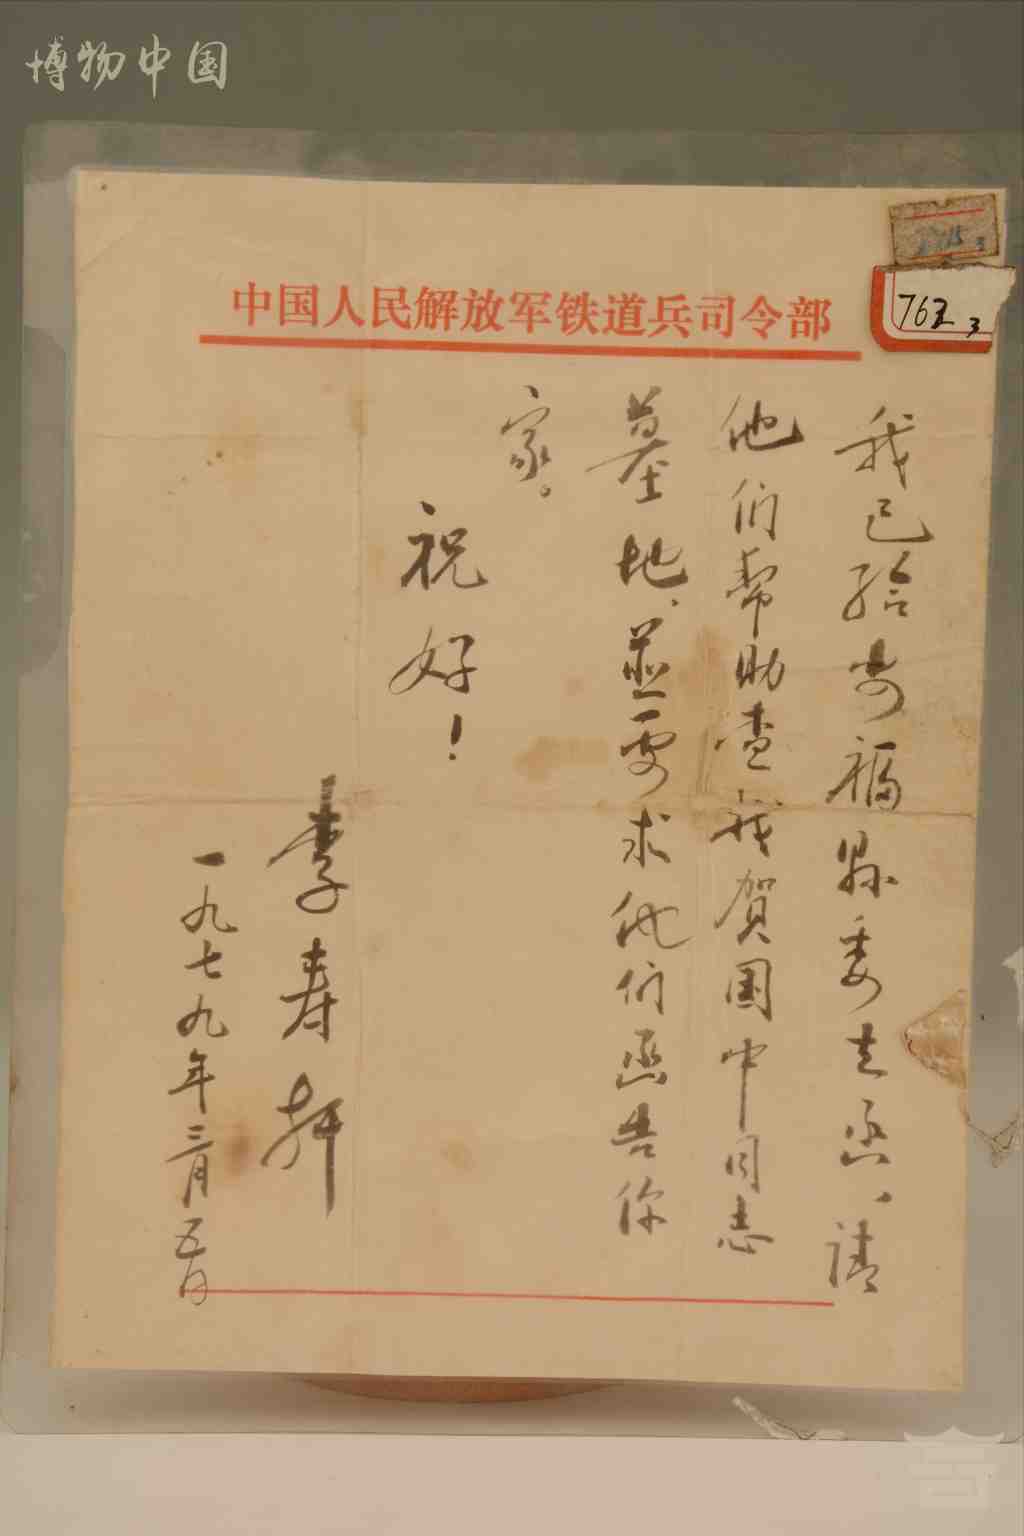 博物中国
中国人民解放军铁道兵司令部
我已给安福县委去函、请
他们帮助查找贺国中同志
墓地、並要求他们函告你
家。
祝好！
李寿轩
一九七九年三月五日